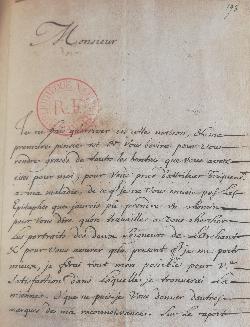 195
Monsieur
BIBLIOTHEQUE NATIONALE
R.F.
Je ne fais qu'arriver en cette maison, et ma
premiere pensée est de Vous écrire pour vous
rendre graces de toutes les bontez que Vous avez
eües pour moy, pour Vous prier d'attribuer
a ma maladie, de ce que je ne Vous envoie pas les
Epitaphes que j'aurois pû prendre
pour Vous dire qu'on travaille a Vous chercher
les portraits des deux Seigneurs de
& pour Vous assurer qu'a present que je me porte
mieux, je feray tout mon possible pour Vre
satisfaction dans laquelle je trouveray la
mienne. Et que ne puis-je Vous donner d'autres
marques de ma reconnoissance. Sur le raport